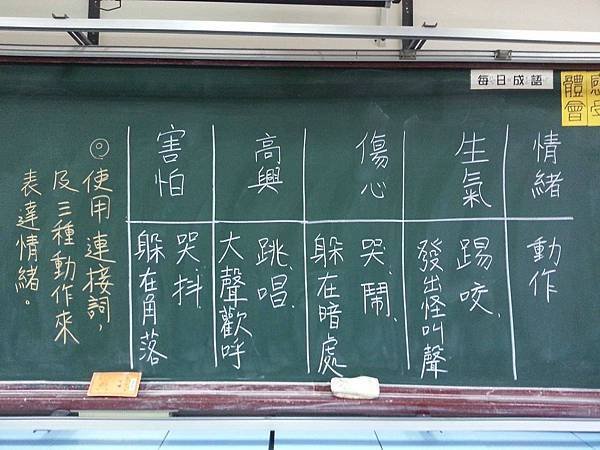 每日成語
感受
體會
情緒
動作
生氣
踢、咬、
發出怪叫聲
傷心
哭、鬧、
躲在暗處
高興
跳、唱、
大聲歡呼
害怕
哭、抖、
躲在角落
◎使用連接詞，
及三種動作來
表達情緒。